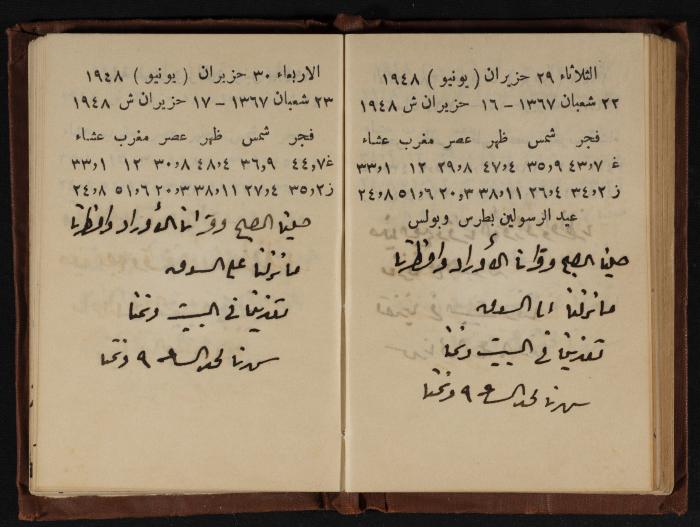 الثلاثاء ٢٩ حزيران ( يونيو ) ١٩٤٨
٢٢ شعبان ١٣٦٧ - ١٦ حزيران ش ١٩٤٨
فجر شمس ظهر عصر مغرب عشاء
غ ٧و٤٣ ٩و٣٥ ٤و٤٧ ٨و٢٩ ١٢ ١و٣٣
ز ٢و٣٤ ٤و٢٦ ١١و٣٨ ٣و٢٠ ٦و٥١ ٨و٢٤
عيد الرسولين بطرس وبولس
صلينا الصبح وقرأنا الأوراد وافطرنا
ما نزلنا الى السوق
تغدينا في البيت ونمنا
سهرنا لحد الساعة ٩ ونمنا
الاربعاء ٣٠ حزيران ( يونيو ) ١٩٤٨
٢٣ شعبان ١٣٦٧ - ١٧ حزيران ش ١٩٤٨
فجر شمس ظهر عصر مغرب عشاء
غ ٧و٤٤ ٩و٣٦ ٤و٤٨ ٨و٣٠ ١٢ ١و٣٣
ز ٢و٣٥ ٤و٢٧ ١١و٣٨ ٣و٢٠ ٦و٥١ ٨و٢٤
صلينا الصبح وقرانا الأوراد وافطرنا
ما نزلنا على السوق
تغدينا في البيت ونمنا
سهرنا لحد الساعة ٩ ونمنا